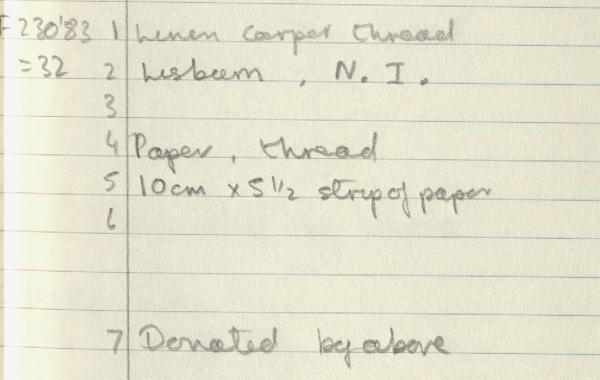 F230'83 1 Linen Carpet thread
=32 2 Lisburn, N. I.
3
4 Paper, thread
5 10cm x 5 1/2 strip of paper
6
7 Donated by above